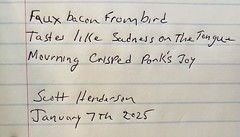 Faux bacon from bird
Tastes like Sadness on The Tongue
Mourning Crisped Pork's Joy
Scott Henderson
January 7th 2025